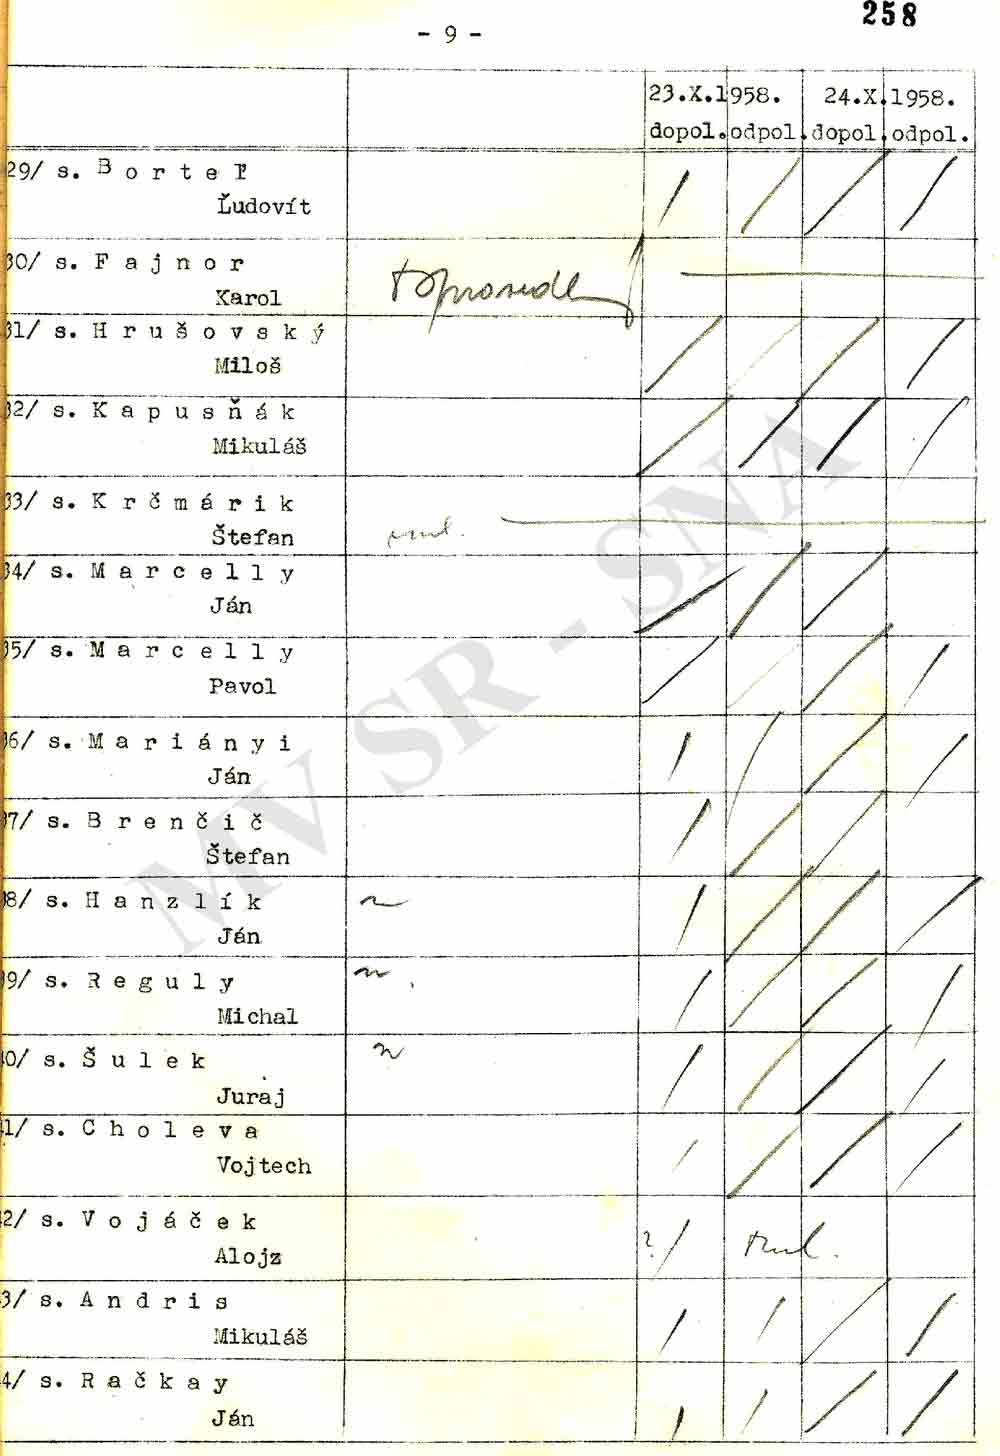 258
- 9 -
23.X.1958. 24.X.1958.
dopol. odpol. dopol. odpol.
29/ s. B o r t e ľ
Ľudovít
30/ s. F a j n o r
Karol
31/ s. H r u š o v s k ý
Miloš
32/ s. K a p u s ň á k
Mikuláš
33/ s. K r č m á r i k
Štefan
34/ s. M a r c e l l y
Ján
35/ s. M a r c e l l y
Pavol
36/ s. M a r i á n y i
Ján
37/ s. B r e n č i č
Štefan
38/ s. H a n z l í k
Ján
39/ s. R e g u l y
Michal
40/ s. Š u l e k
Juraj
41/ s. C h o l e v a
Vojtech
42/ s. V o j á č e k
Alojz
?
43/ s. A n d r i s
Mikuláš
44/ s. R a č k a y
Ján
MV SR - SNA